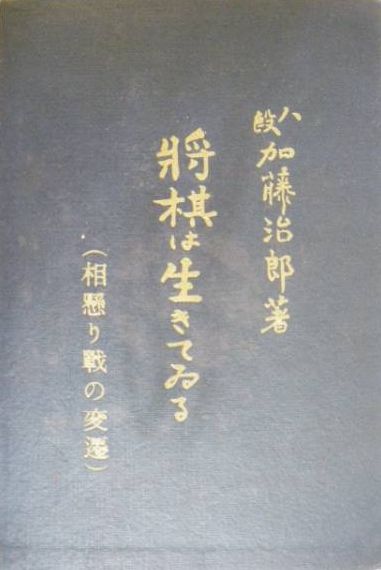 八段 加藤治郎著
將棋は生きてゐる
(相懸り戰の変遷)